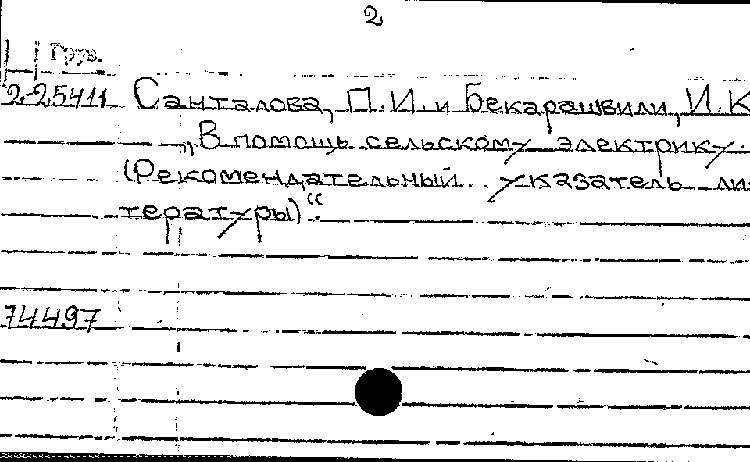 2
Груз.
2-25411 Санталова, П.И. и Бекарашвили, И.К
„В помощь сельскому электрику.
(Рекомендательный указатель ли-
тературы)“.
74497